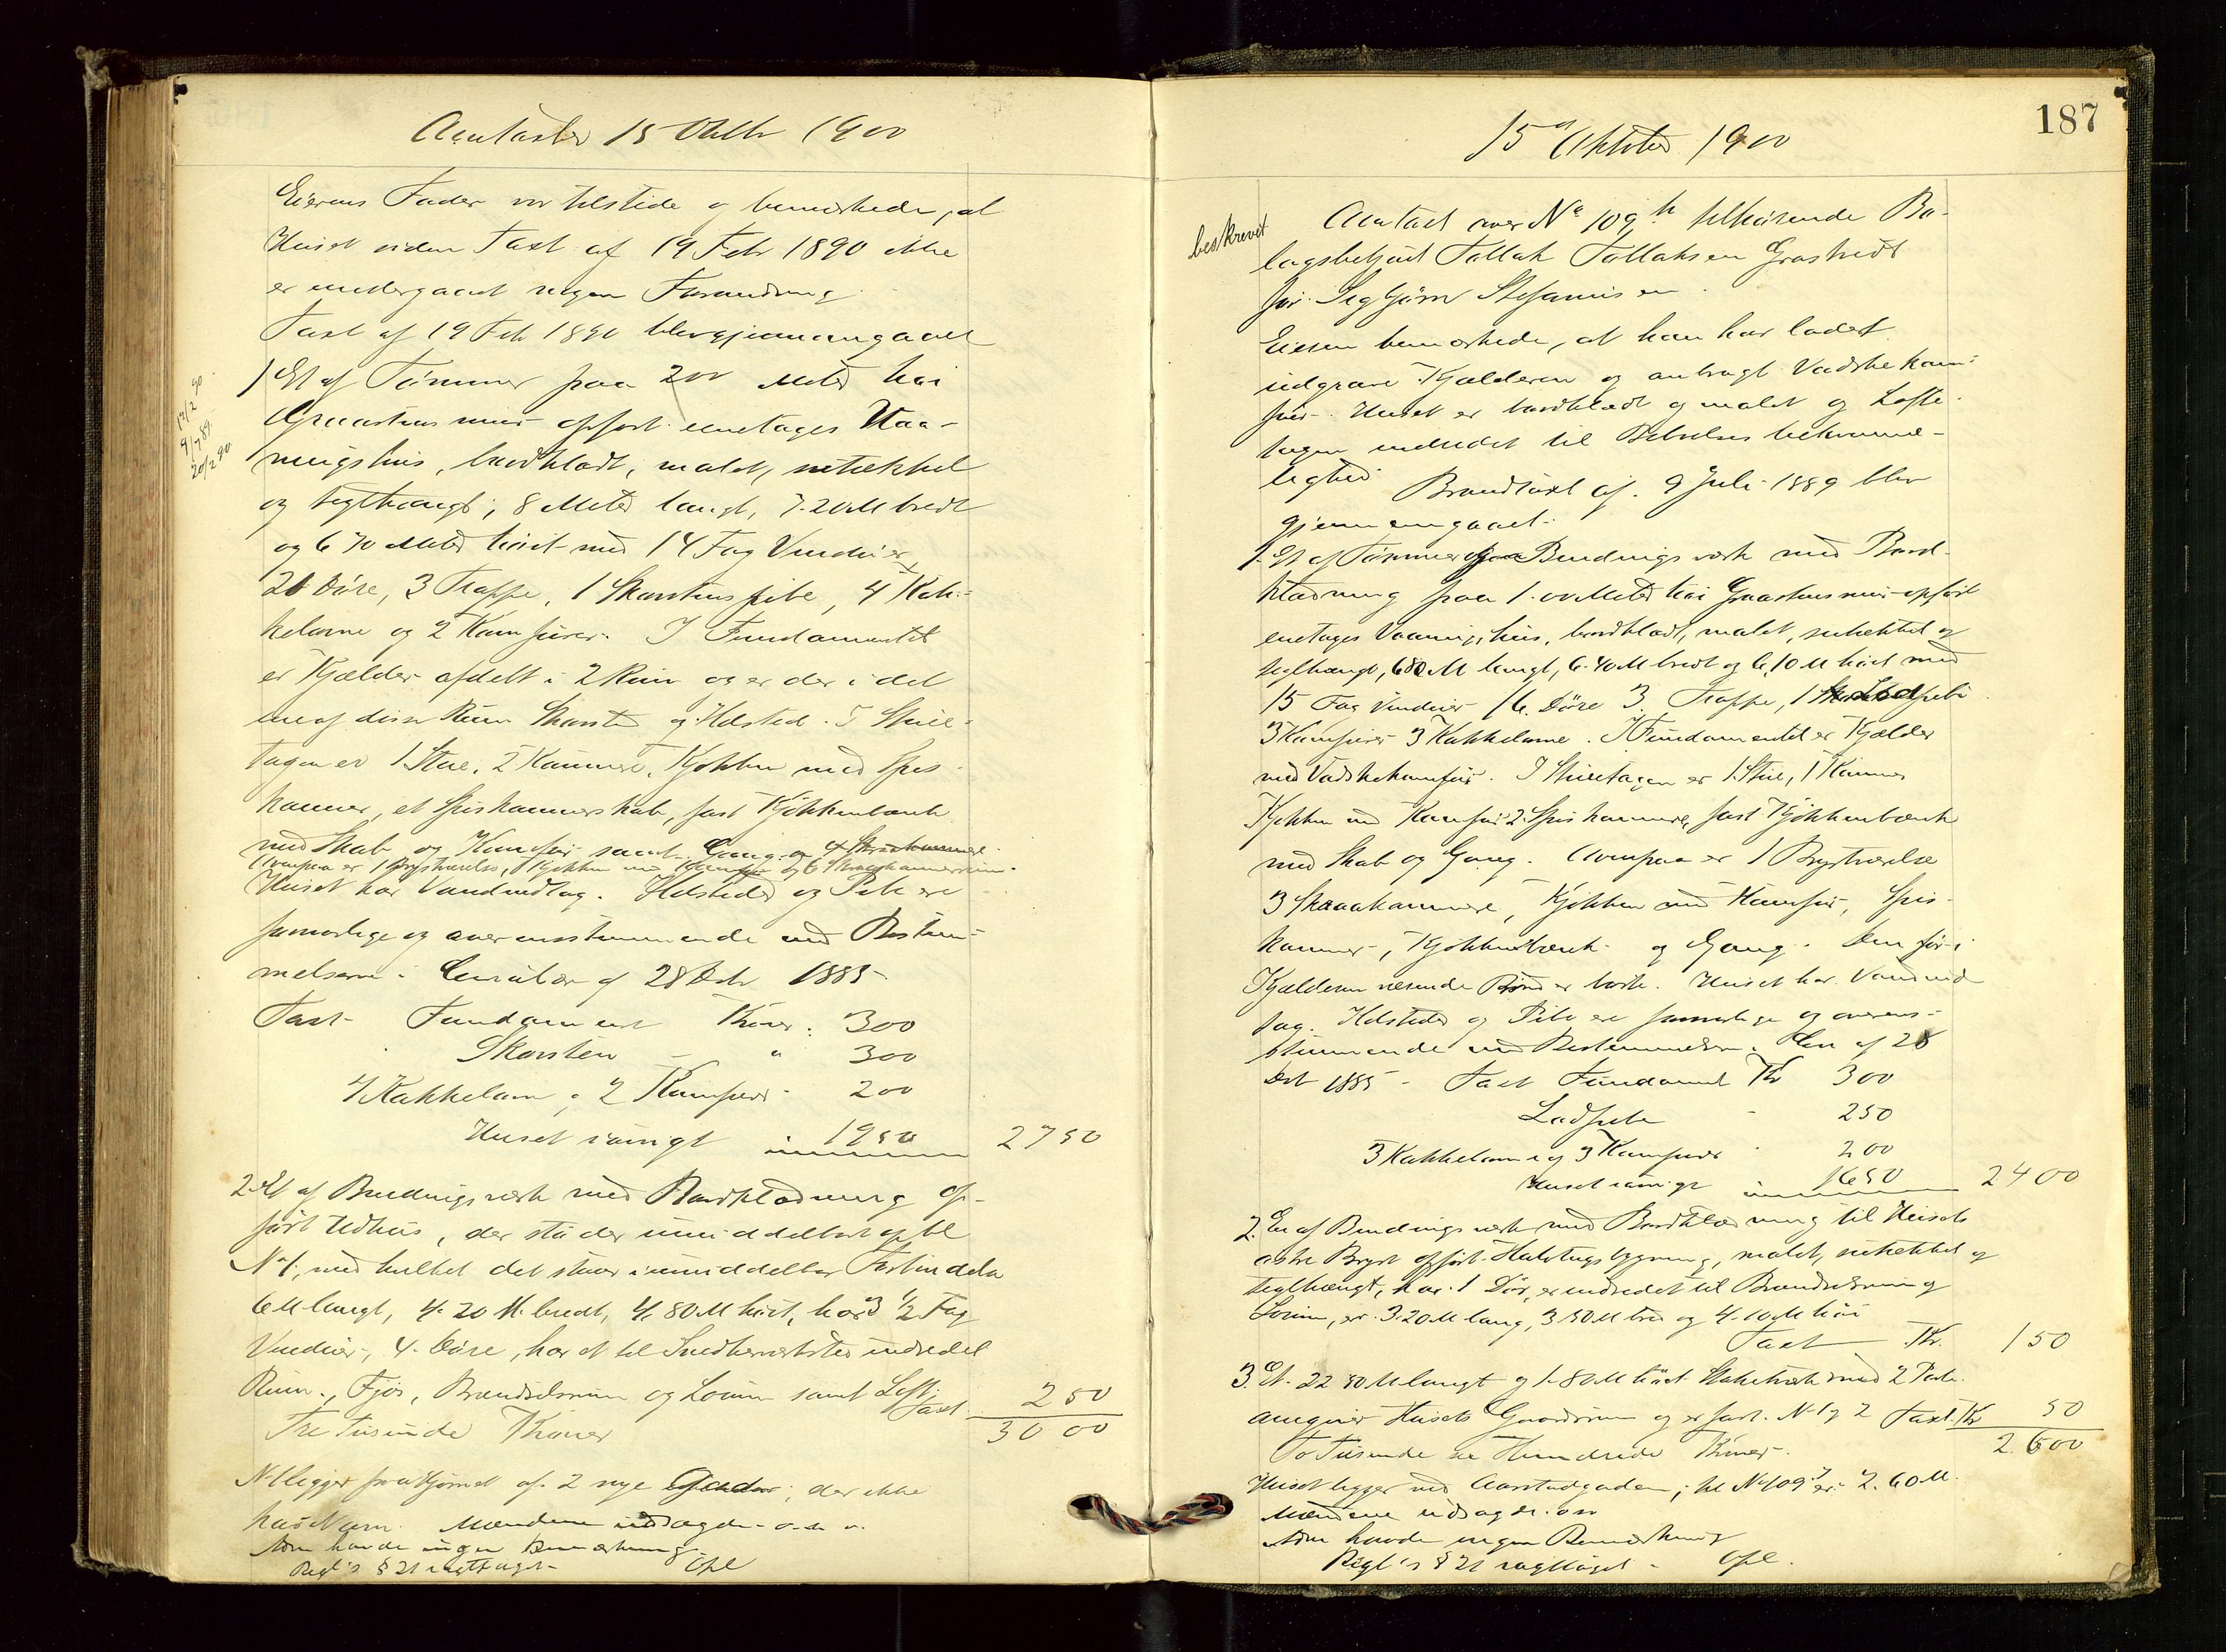 Omtaxter 15 Oktbr 1900
Eierens Fader var tilstede og bemærkede, at
Huset siden Taxt af 19 Febr 1890 ikke
er undergaaet nogen Forandring
Taxt af 19 Feb 1890 blev gjennemgaaet
19/2 90.
9/7 89.
20/2 90
1 Et af Tømmer paa 200 Meter høi
Graastens mur opført eenetages Vaa-
ningshus, bordklædt, malet, suttækket
og teglhængt; 8 Meter langt, 7.20 M bredt
og 6 70 Meter høit med 14 Fag Vinduer
21 Døre, 3 Trappe, 1 Skorstenspibe, 4 Kak-
kelovne og 2 Komfurer. I Fundamentet
er Kjelder afdelt i 2 Rum og er der i det
ene af disse Rum Skorsten og Ildsted. I Stue-
tagen er 1 Stue, 2 Kammere, Kjøkken med Spis-
kammer, et Spiskammerskab, fast Kjøkkenbænk
med Skab og Komfur samt Gang og 4 Skraakammere.
Ovenpaa er 1 Brystværelse, 1 Kjøkken med Komfur og 6 Skraakammerrum.
Huset har Vandindlæg. Ildsteder og Pibe ere
forsvarlige og overensstemmende med Bestem-
melserne i Cirkulær af 28 Octr 1885-
Taxt Fundament Kroner. 300
Skorsten - " 300
4 Kakkelovn og 2 Komfurer - 200
Huset iøvrigt 1950 2750
2. Et af Bindingsværk med Bordklædning op-
ført Udhus, der støder umiddelbart op til
No 1, med hvilket det staar i umiddelbar Forbindelse
6 M langt, 4.20 M. bredt, 4.80 M høit, har 3 1/2 Fag
Vinduer, 4 Døre, har et til Snedkerværksted indredet
Rum, Fjøs, Brændselsrum og Lorum samt Loft;
Taxt 250
Tre Tusinde Kroner 3000
No 1 ligger paa Hjørnet af 2 nye Gader, der ikke
har Navn. Mændene udsagde o.s.v.
som havde ingen Bemærkning
Regl's § 21 iagttaget - Opl
187
15de Oktober 1900
beskrevet
Omtaxt over No 109 h tilhørende Bo-
lagsbetjent Tollak Tollaksen Grastveit
før Sigbjørn Stefanisen.
Eieren bemærkede, at han har ladet
udgrave Kjælderen og anbragt Vadske kom-
fur. Huset er bordklædt og malet og Lofte-
tagen indredet til Beboelses bekvemme-
lighed Brandtaxt af 9 Juli 1889 blev
gjennemgaaet.
1. Et af Tømmer og Bindingsværk med Bord-
klædning paa 1.00 Meter høi Graastens mur opført
enetages Vaaningshus, bordklædt, malet, suttækket og
teglhængt, 680 M langt, 6.40 M bredt og 6,10 M høit med
15 Fag Vinduer 16 Døre 3 Trappe, 1 Lodpibe
3 Komfurer 3 Kakkelovne. I Fundamentet er Kjælder
med Vadskekomfur. I Stuetagen er 1 Stue, 1 Kammer
Kjøkken med Komfur 2 Spiskammere, fast Kjøkkenbænk
med Skab og Gang. Ovenpaa er 1 Brystværelse
3 Skraakammere, Kjøkken med Komfur, Spis-
kammer, Kjøkkenbænk og Gang. Den før i
Kjælderen værende Brønd er borte. Huset har Vandind
læg. Ildsteder og Pibe ere forsvarlige og overens-
stemmende med Bestemmelsen i Cir af 28
Oct 1885 - Taxt Fundament Kr 300
Lodpibe - 250
3 Kakkelovne og 3 Komfurer 200
Huset iøvrigt 1650 2400
2. En af Bindingsværk med Bordklædning til Husets
østre Bryst opført Halvtagsbygning, malet, suttækket og
teglhængt, har 1 Dør, er indredet til Brændselsrum og
Lorum, er 3.20 M lang, 3 50 M bred og 4.10 M høi
Taxt Kr. 150
3. Et 22 50 M langt og 1.80 M høit Stakitværk med 2 Porte
omgiver Husets Gaardsrum og er fast. No 1 og 2 Taxt Kr 50
To Tusende sex Hundrede Kroner. 2.600
Huset ligger ved Aarstadgaden; til No 109 i er 2.60 M.
Mændene udsagde o.s.v
som havde ingen Bemærkning
Regl's § 21 iagttaget - Opl.